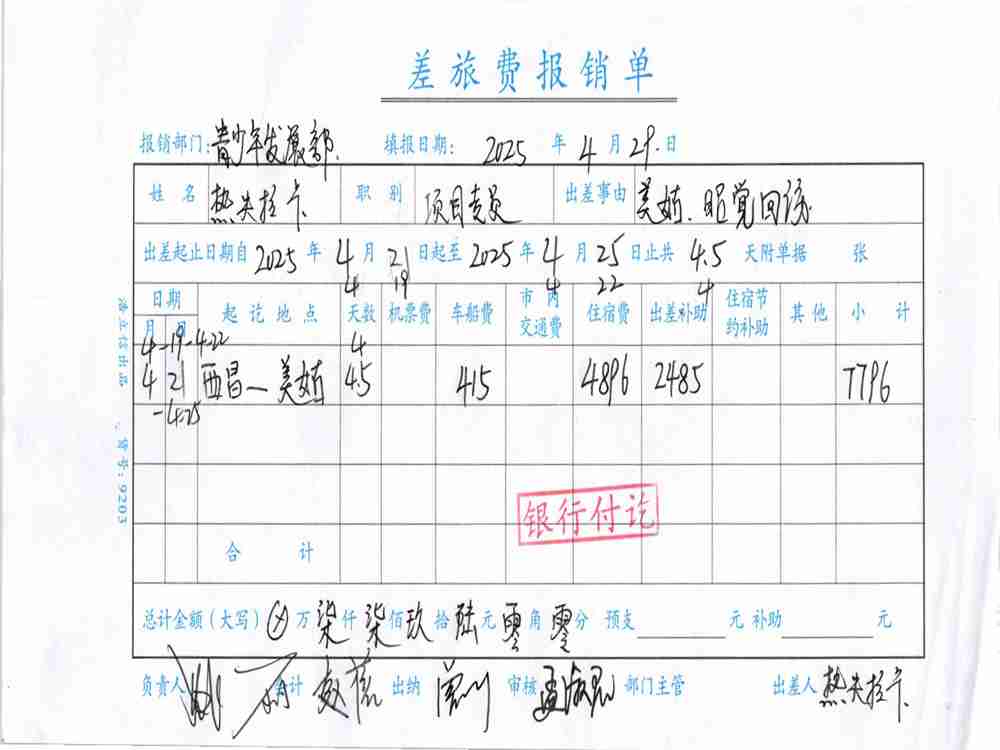 差旅费报销单
报销部门：青少年发展部 填报日期：2025 年 4 月 29 日
姓名 热夫拉卡 职别 项目专员 出差事由 美姑、昭觉回访
出差起止日期自 2025 年 4 月 21 日起至 2025 年 4 月 25 日止共 4.5 天附单据 张
4 19 4 22 4
日期 起讫地点 天数 机票费 车船费 市内交通费 住宿费 出差补助 住宿节约补助 其他 小计
月 日
4-19-4.22 4
4 21 西昌—美姑 4.5 415 4896 2485 7796
-4.25
银行付讫
合计
总计金额（大写）⊗万柒仟柒佰玖拾陆元零角零分 预支 元 补助 元
负责人 会计 出纳 审核 部门主管 出差人 热夫拉卡
货号：9203